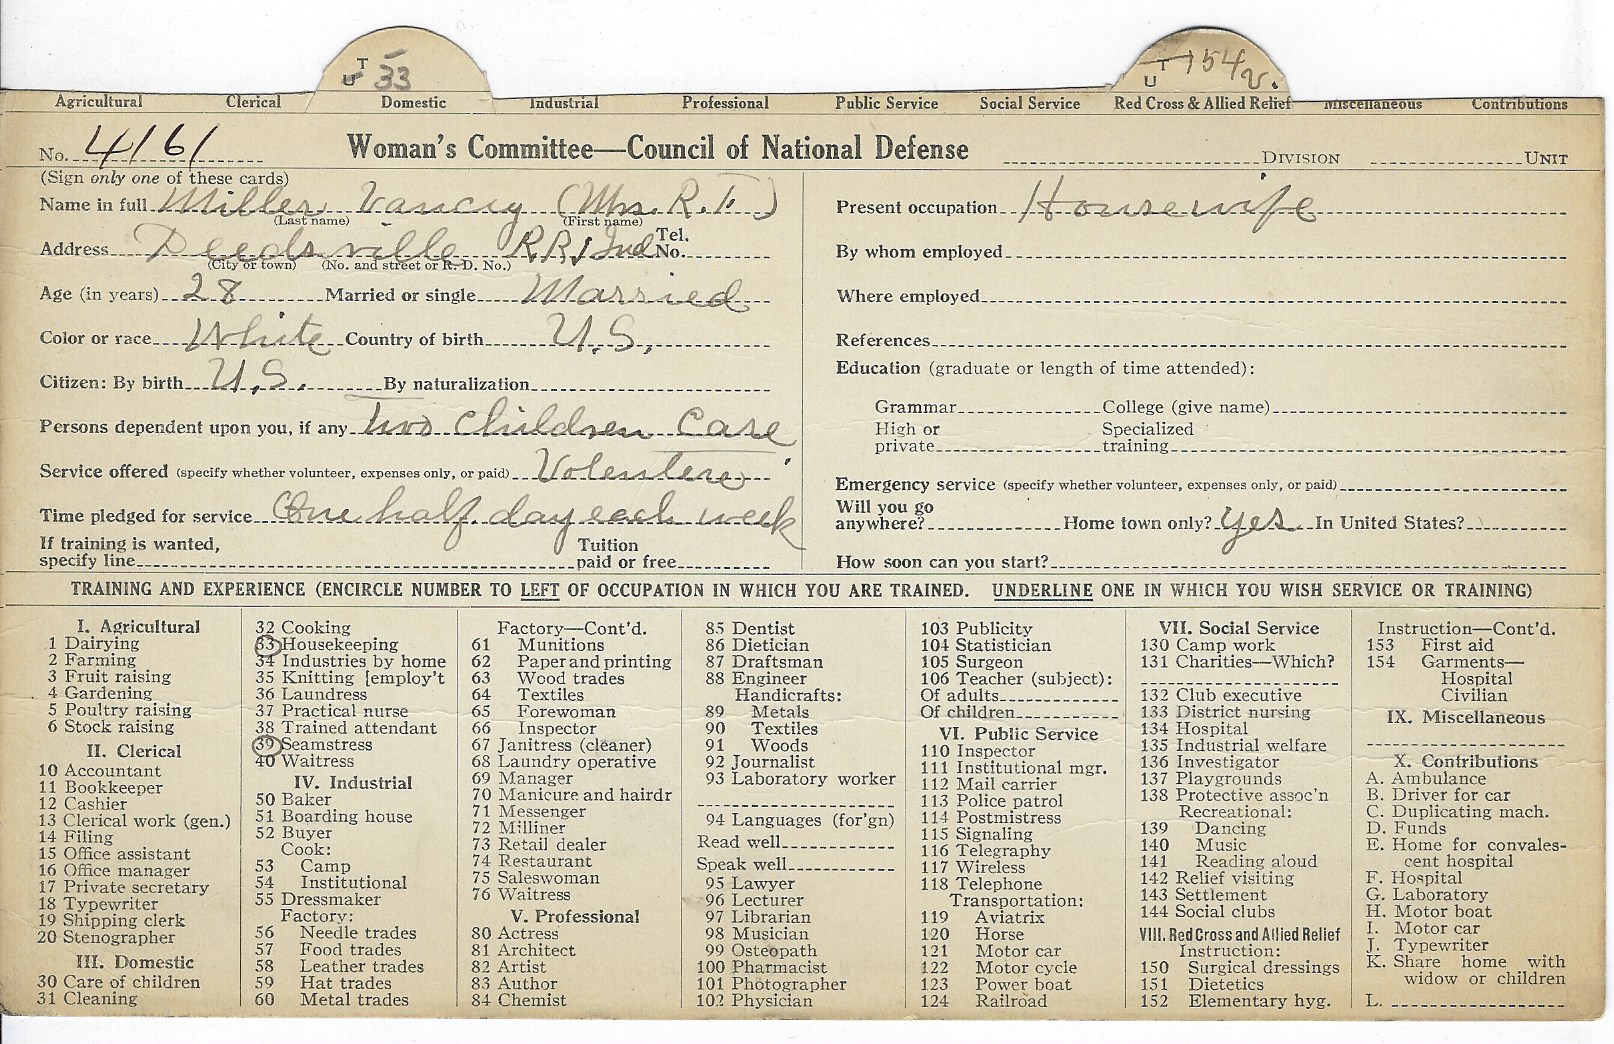 T
U 33
T
U 154 v.
Agricultural Clerical Domestic Industrial Professional Public Service Social Service Red Cross & Allied Relief Miscellaneous Contributions
No. 4161 Woman's Committee—Council of National Defense DIVISION UNIT
(Sign only one of these cards)
Name in full Miller Vancig (Mrs. R. F.)
(Last name) (First name)
Address Deedsville R.R. 1 Ind Tel. No.
(City or town) (No. and street or R. D. No.)
Age (in years) 28 Married or single Married
Color or race White Country of birth U.S.
Citizen: By birth U.S. By naturalization
Persons dependent upon you, if any two children Care
Service offered (specify whether volunteer, expenses only, or paid) Volentere
Time pledged for service One half day each week
If training is wanted, specify line Tuition paid or free
Present occupation Housewife
By whom employed
Where employed
References
Education (graduate or length of time attended):
Grammar College (give name)
High or private Specialized training
Emergency service (specify whether volunteer, expenses only, or paid)
Will you go anywhere? Home town only? yes In United States?
How soon can you start?
TRAINING AND EXPERIENCE (ENCIRCLE NUMBER TO LEFT OF OCCUPATION IN WHICH YOU ARE TRAINED. UNDERLINE ONE IN WHICH YOU WISH SERVICE OR TRAINING)
I. Agricultural
1 Dairying
2 Farming
3 Fruit raising
4 Gardening
5 Poultry raising
6 Stock raising
II. Clerical
10 Accountant
11 Bookkeeper
12 Cashier
13 Clerical work (gen.)
14 Filing
15 Office assistant
16 Office manager
17 Private secretary
18 Typewriter
19 Shipping clerk
20 Stenographer
III. Domestic
30 Care of children
31 Cleaning
32 Cooking
33 Housekeeping
34 Industries by home
35 Knitting [employ't
36 Laundress
37 Practical nurse
38 Trained attendant
39 Seamstress
40 Waitress
IV. Industrial
50 Baker
51 Boarding house
52 Buyer
Cook:
53 Camp
54 Institutional
55 Dressmaker
Factory:
56 Needle trades
57 Food trades
58 Leather trades
59 Hat trades
60 Metal trades
Factory—Cont'd.
61 Munitions
62 Paper and printing
63 Wood trades
64 Textiles
65 Forewoman
66 Inspector
67 Janitress (cleaner)
68 Laundry operative
69 Manager
70 Manicure and hairdr
71 Messenger
72 Milliner
73 Retail dealer
74 Restaurant
75 Saleswoman
76 Waitress
V. Professional
80 Actress
81 Architect
82 Artist
83 Author
84 Chemist
85 Dentist
86 Dietician
87 Draftsman
88 Engineer
Handicrafts:
89 Metals
90 Textiles
91 Woods
92 Journalist
93 Laboratory worker
94 Languages (for'gn)
Read well
Speak well
95 Lawyer
96 Lecturer
97 Librarian
98 Musician
99 Osteopath
100 Pharmacist
101 Photographer
102 Physician
103 Publicity
104 Statistician
105 Surgeon
106 Teacher (subject):
Of adults
Of children
VI. Public Service
110 Inspector
111 Institutional mgr.
112 Mail carrier
113 Police patrol
114 Postmistress
115 Signaling
116 Telegraphy
117 Wireless
118 Telephone
Transportation:
119 Aviatrix
120 Horse
121 Motor car
122 Motor cycle
123 Power boat
124 Railroad
VII. Social Service
130 Camp work
131 Charities—Which?
132 Club executive
133 District nursing
134 Hospital
135 Industrial welfare
136 Investigator
137 Playgrounds
138 Protective assoc'n
Recreational:
139 Dancing
140 Music
141 Reading aloud
142 Relief visiting
143 Settlement
144 Social clubs
VIII. Red Cross and Allied Relief
Instruction:
150 Surgical dressings
151 Dietetics
152 Elementary hyg.
Instruction—Cont'd.
153 First aid
154 Garments—
Hospital
Civilian
IX. Miscellaneous
X. Contributions
A. Ambulance
B. Driver for car
C. Duplicating mach.
D. Funds
E. Home for convales-
cent hospital
F. Hospital
G. Laboratory
H. Motor boat
I. Motor car
J. Typewriter
K. Share home with
widow or children
L.